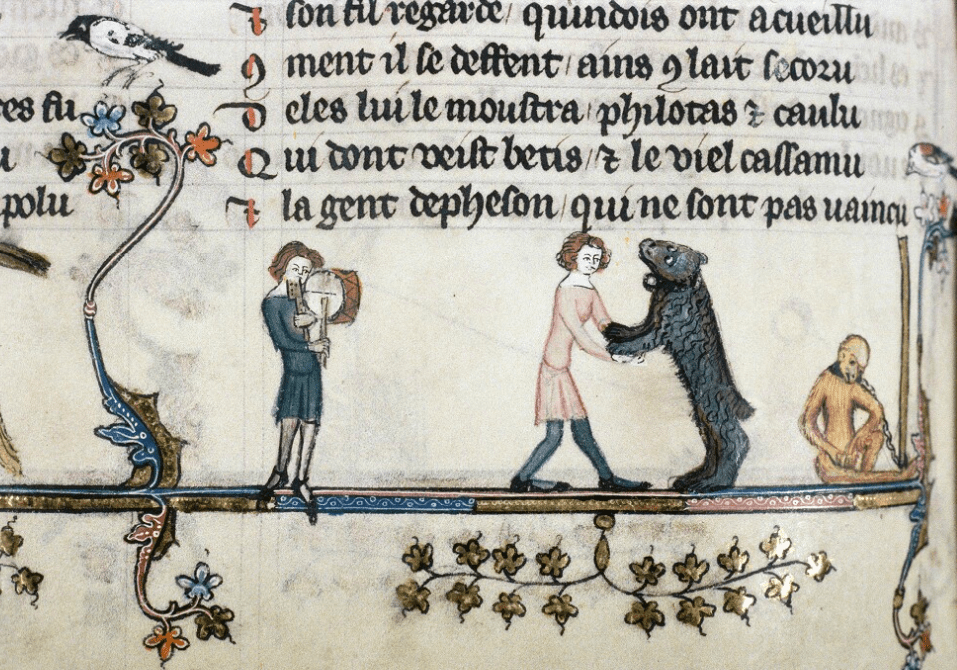 ⁊ son fil regarde / quindois ont acueillu
ꝯment il se deffent / ains ꝯlait secoru
Deles lui le moustra / philotas ⁊ caulu
Qui dont veist betis / ⁊ le viel cassamu
⁊ la gent depheson / qui ne sont pas uaincu
es fu
u
polu